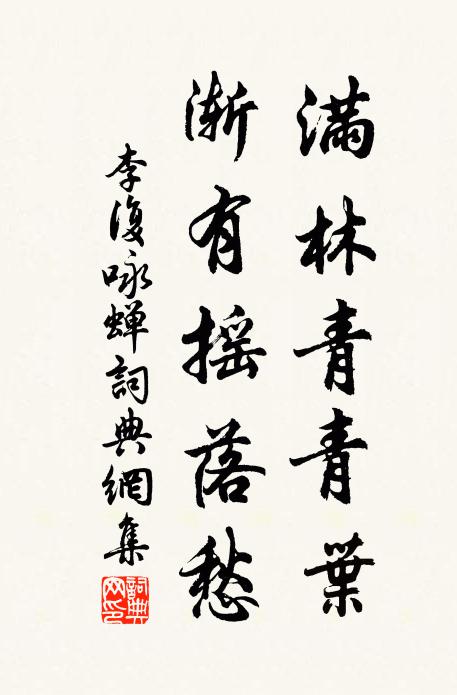 滿林青青葉
漸有摇落愁
李復咏蝉詞典網集
詞典网印